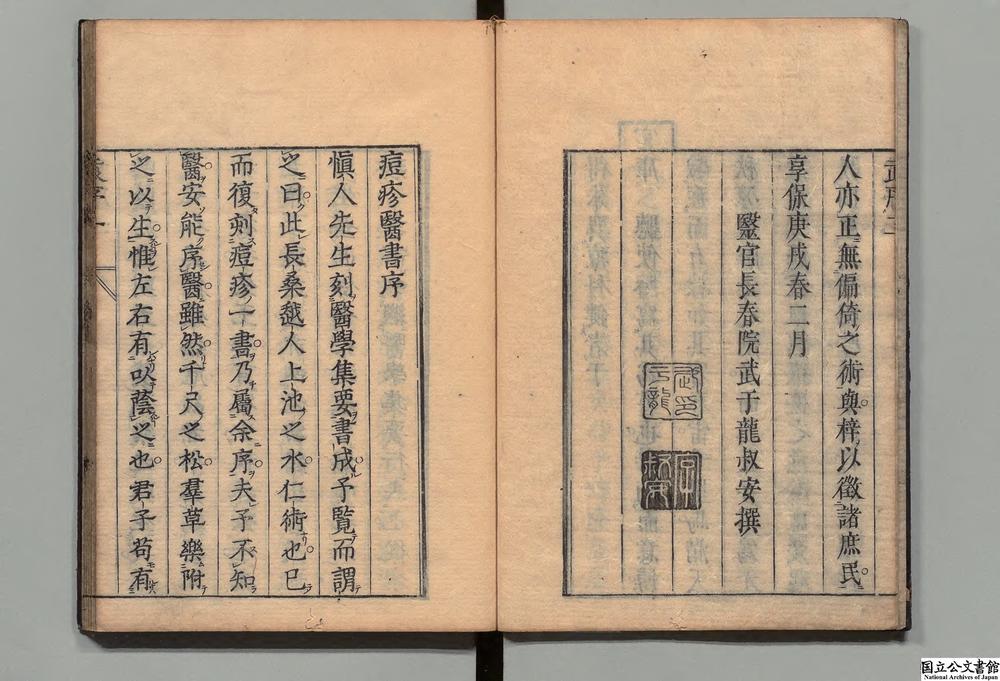 人亦正無偏倚之術與梓以徵諸庶民
享保庚戌春二月
毉官長春院武于龍叔安撰
痘疹醫書序
愼人先生刻醫學集要書成予覽而謂
之曰此長桑越人上池之水仁術也已
而復刻痘疹一書乃屬余序夫予不知
醫安能序醫雖然千尺之松羣草樂附
之以生惟左右有以蔭之也君子苟有
国立公文書館
National Archives of Japan